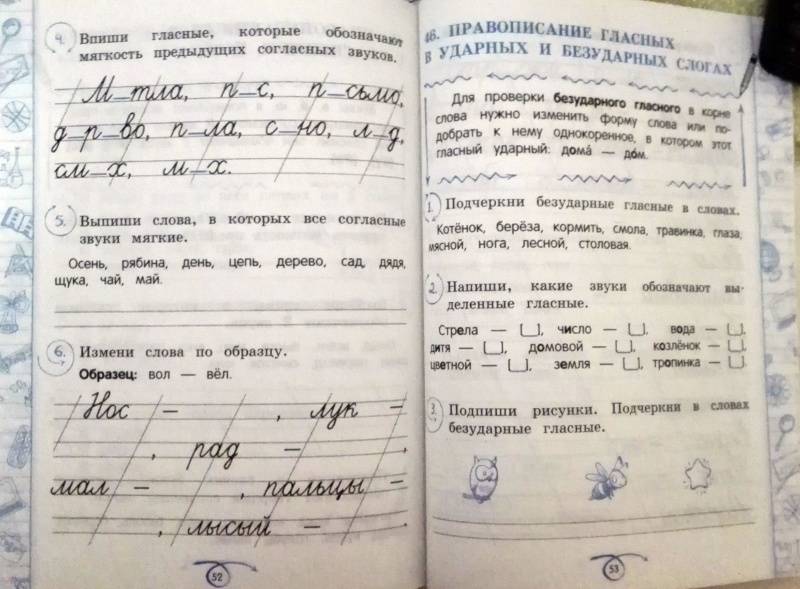 4. Впиши гласные, которые обозначают
мягкость предыдущих согласных звуков.
М_тла, п_с, п_сьмо,
д_р_во, п_ла, с_но, л_д,
см_х, м_х.
5. Выпиши слова, в которых все согласные
звуки мягкие.
Осень, рябина, день, цепь, дерево, сад, дядя,
щука, чай, май.
6. Измени слова по образцу.
Образец: вол — вёл.
Нос – , лук –
, рад –
мал – , пальцы –
, лысый – .
52
46. ПРАВОПИСАНИЕ ГЛАСНЫХ
В УДАРНЫХ И БЕЗУДАРНЫХ СЛОГАХ
Для проверки безударного гласного в корне
слова нужно изменить форму слова или по-
добрать к нему однокоренное, в котором этот
гласный ударный: дома́ — до́м.
1. Подчеркни безударные гласные в словах.
Котёнок, берёза, кормить, смола, травинка, глаза,
мясной, нога, лесной, столовая.
2. Напиши, какие звуки обозначают вы-
деленные гласные.
Стрела — [ ], число — [ ], вода — [ ],
дитя — [ ], домовой — [ ], козлёнок — [ ],
цветной — [ ], земля — [ ], тропинка — [ ].
3. Подпиши рисунки. Подчеркни в словах
безударные гласные.
53